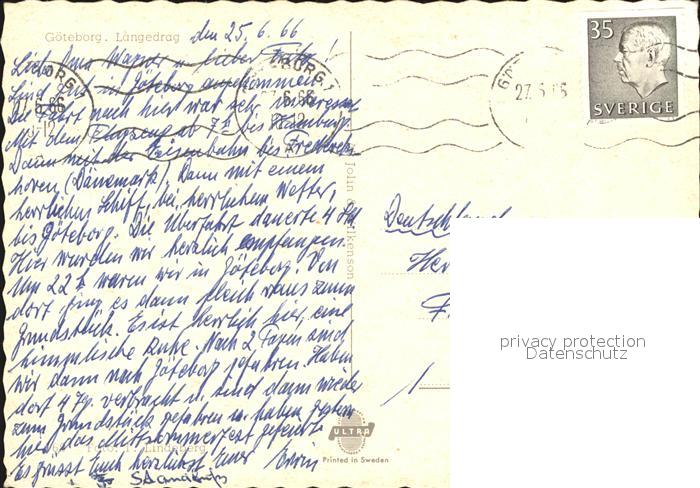 Göteborg. Långedrag
den 25.6.66
Liebe Oma u. lieber
Sind gut in Göteborg angekommen.
Die Fahrt nach hier war sehr interessant
Mit dem Flugzeug ab 7h bis Hamburg.
Dann mit der Eisenbahn bis Frederiks-
haven (Dänemark). Dann mit einem
herrlichen Schiff, bei herrlichem Wetter,
bis Göteborg. Die Überfahrt dauerte 4 Std
Hier wurden wir herzlich empfangen.
Um 22h waren wir in Göteborg. Von
dort ging es dann gleich raus zum
Grundstück. Es ist herrlich hier, eine
himmlische Ruhe. Nach 2 Tagen sind
wir dann nach Göteborg gefahren. Haben
dort 4 Tg. verbracht u. sind dann wieder
zum Grundstück gefahren u. haben gestern
hier das Mittsommerfest gefeiert.
Foto: Lindeberg
Es grüsst Euch herzlichst Euer Erwin
John Wilkenson
ULTRA
Printed in Sweden
27.6.66
35
SVERIGE
Deutschland
privacy protection
Datenschutz